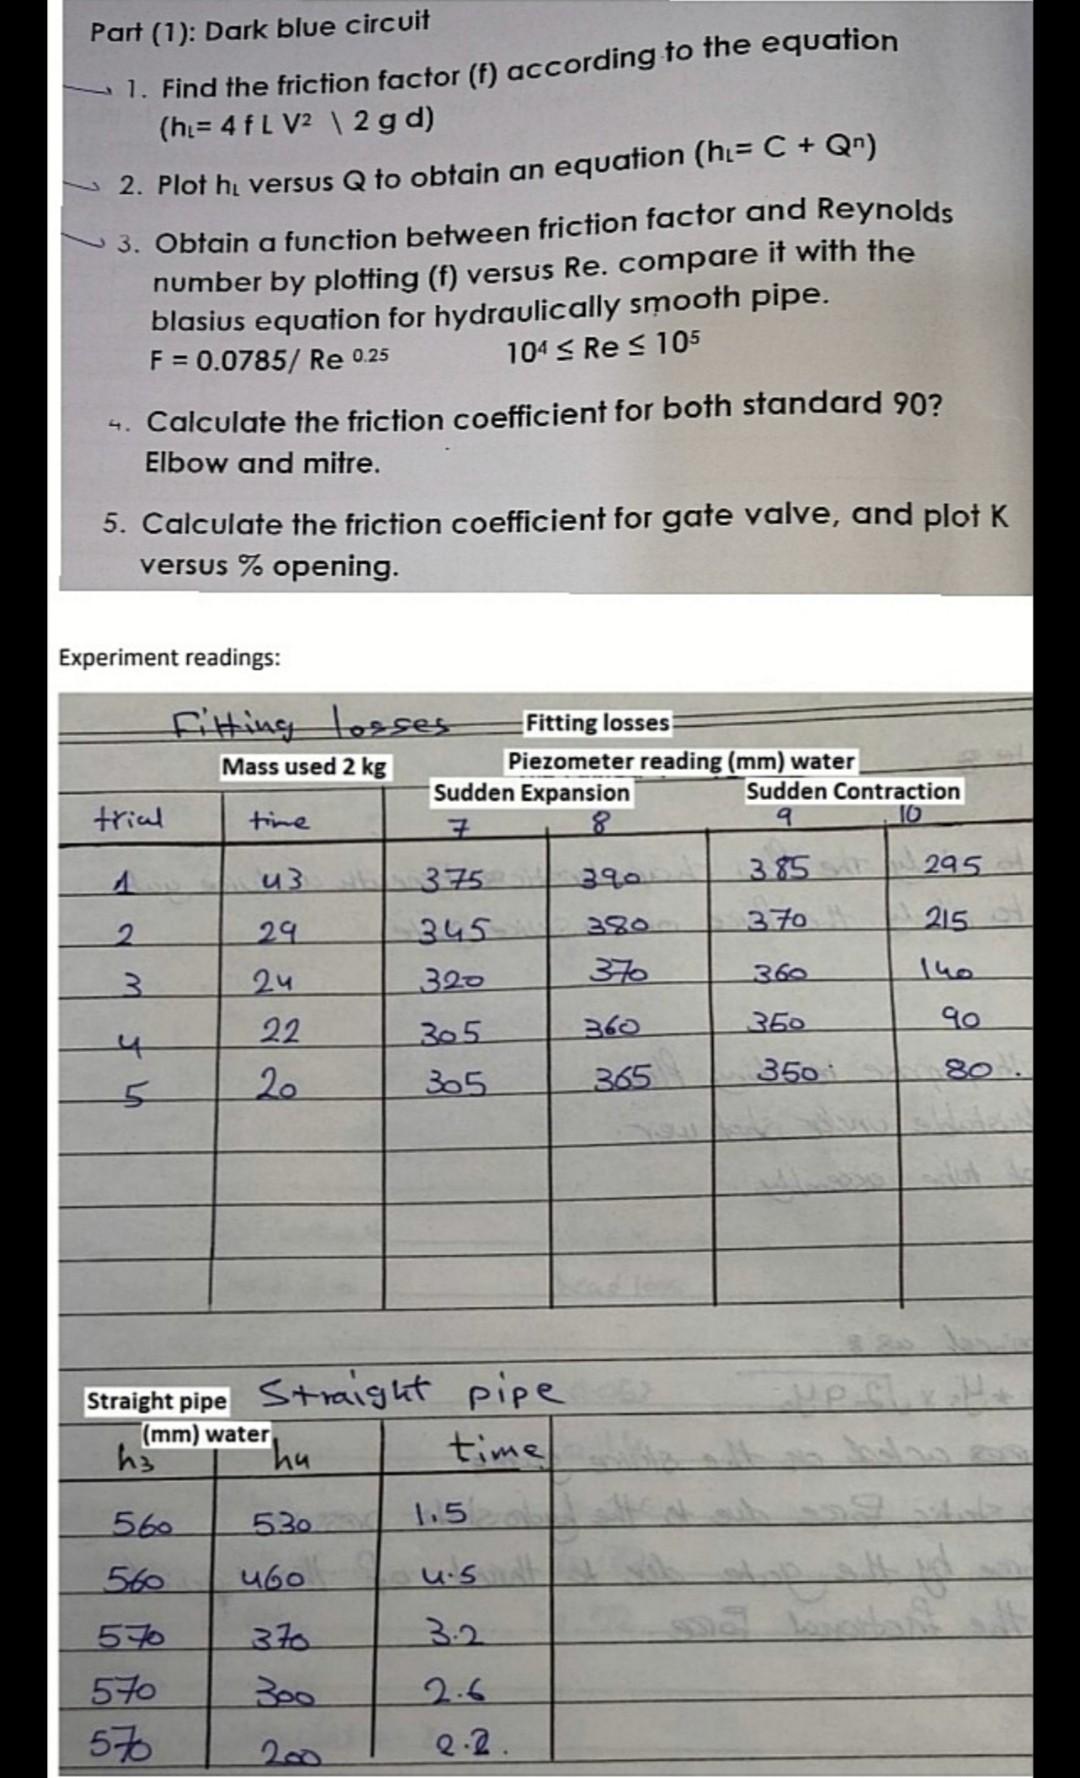 Part (1): Dark blue circuit
1. Find the friction factor (f) according to the equation
(hL= 4 f L V² \ 2 g d)
2. Plot hL versus Q to obtain an equation (hL= C + Qⁿ)
3. Obtain a function between friction factor and Reynolds
number by plotting (f) versus Re. compare it with the
blasius equation for hydraulically smooth pipe.
F = 0.0785/ Re 0.25 10⁴ ≤ Re ≤ 10⁵
4. Calculate the friction coefficient for both standard 90?
Elbow and mitre.
5. Calculate the friction coefficient for gate valve, and plot K
versus % opening.
Experiment readings:
Fitting losses Fitting losses
Mass used 2 kg Piezometer reading (mm) water
Sudden Expansion Sudden Contraction
trial time 7 8 9 10
1 43 375 390 385 295
2 29 345 380 370 215
3 24 320 370 360 140
4 22 305 360 350 90
5 20 305 365 350 80.
Straight pipe Straight pipe
(mm) water
h3 h4 time
560 530 1.5
560 460 4.5
570 370 3.2
570 300 2.6
570 200 2.2.